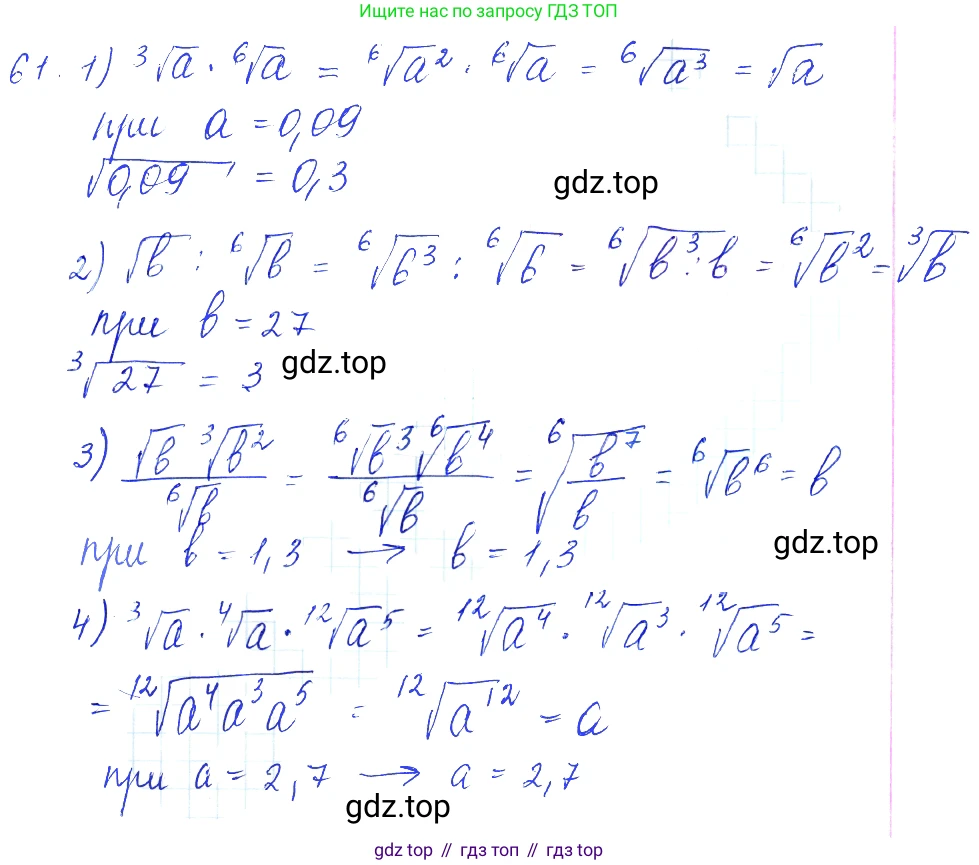 Ищите нас по запросу ГДЗ ТОП
61. 1) ³√a · ⁶√a = ⁶√a² · ⁶√a = ⁶√a³ = √a
при a = 0,09
√0,09 = 0,3
gdz.top
2) √b : ⁶√b = ⁶√b³ : ⁶√b = ⁶√b³:b = ⁶√b² = ³√b
при b = 27
³√27 = 3
gdz.top
3) √b ³√b² / ⁶√b = ⁶√b³ ⁶√b⁴ / ⁶√b = ⁶√b⁷/b = ⁶√b⁶ = b
при b = 1,3 → b = 1,3
gdz.top
4) ³√a · ⁴√a · ¹²√a⁵ = ¹²√a⁴ · ¹²√a³ · ¹²√a⁵ =
= ¹²√a⁴a³a⁵ = ¹²√a¹² = a
при a = 2,7 → a = 2,7
gdz.top
gdz top // гдз топ // гдз top